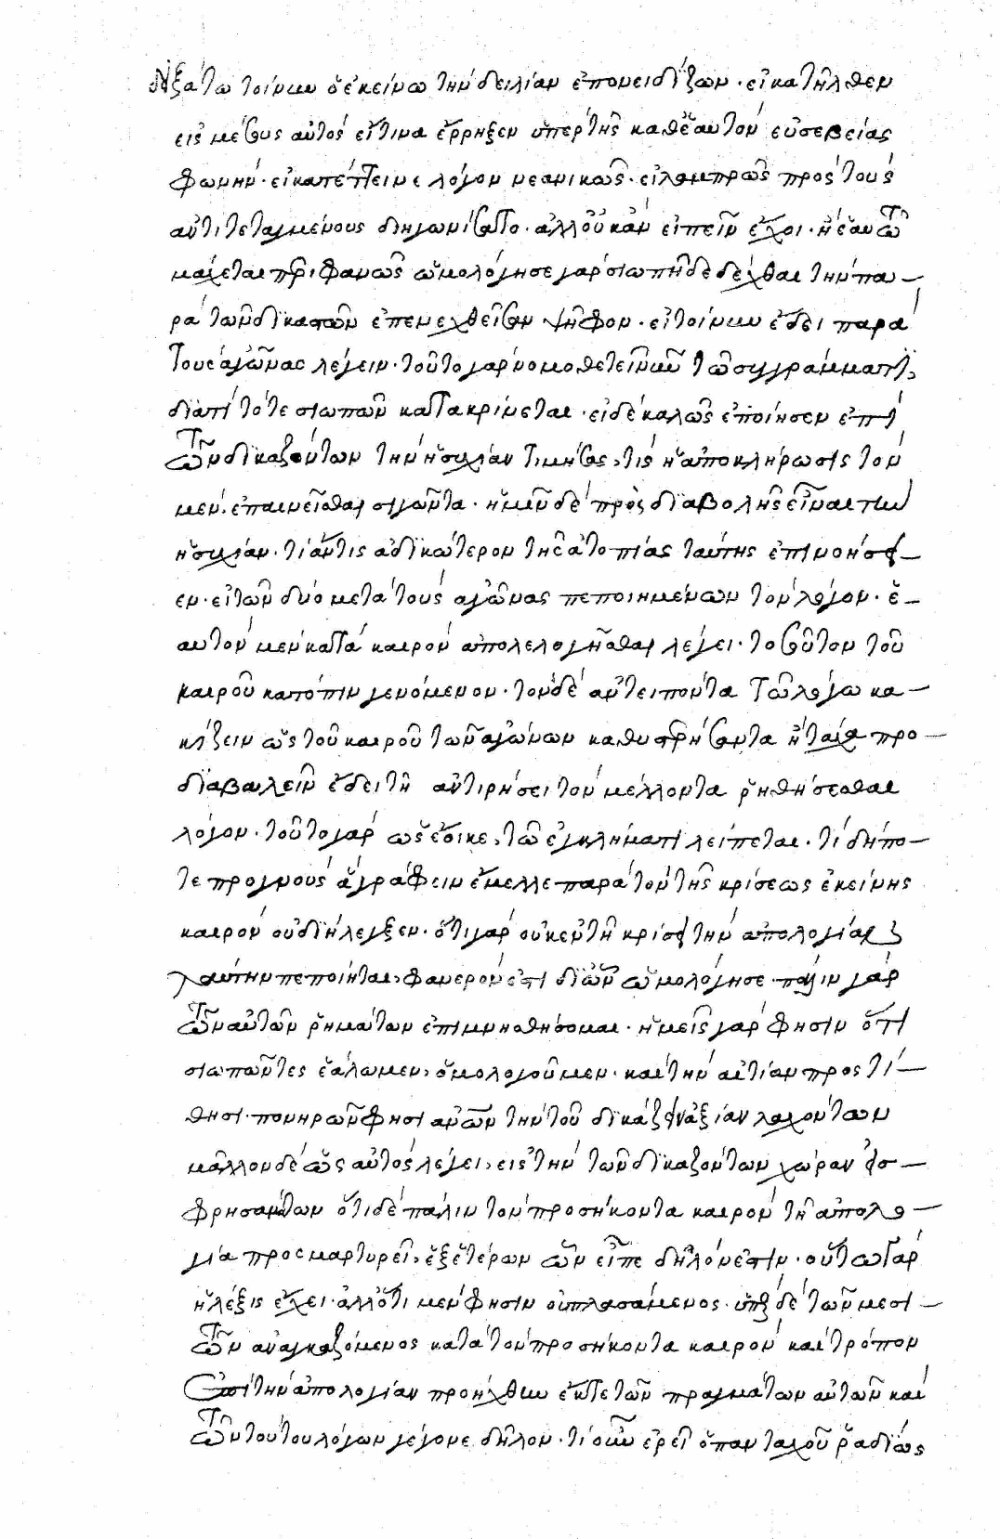 δειξάτω τοίνυν ὁ ἐκείνω τὴν δειλίαν ἐπονειδίζων· εἰ κατῆλθεν
εἰς μέσους αὐτός· εἴ τινα ἔρρηξεν ὑπὲρ τῆς καθ' ἑαυτὸν εὐσεβείας
φωνήν· εἰ κατέτεινε λόγον νεανικῶς· εἰ λαμπρῶς πρὸς τοὺς
ἀντιτεταγμένους διηγωνίσατο· ἀλλ' οὐκ ἂν εἰπεῖν ἔχοι· ἢ ἑαυτῶ
μάχεται περιφανῶς ὡμολόγησε γὰρ σιωπῆ δεδέχθαι τὴν πα-
ρὰ τῶν δικαστῶν ἐπενεχθεῖσαν ψῆφον· εἰ τοίνυν ἔδει παρὰ
τοὺς ἀγῶνας λέγειν· τοῦτο γὰρ νομοθετεῖ νῦν τῶ συγγράμματι,
διατί τότε σιωπῶν κατακρίνεται· εἰ δὲ καλῶς ἐποίησεν ἐπὶ
τῶν δικαζόντων τὴν ἡσυχίαν τιμήσας, τίς ἡ ἀποκλήρωσις τὸν
μὲν ἐπαινεῖσθαι σιγῶντα· ἡμῖν δὲ πρὸς διαβολῆς εἶναι τὴν
ἡσυχίαν· τί ἄν τις ἀδικώτερον τῆς ἀτοπίας ταύτης ἐπινοήσει-
εν· εἰ τῶν δύο μετὰ τοὺς ἀγῶνας πεποιημένων τὸν λόγον· ἑ-
αυτὸν μὲν κατὰ καιρὸν ἀπολελογῆσθαι λέγει· τοσοῦτον τοῦ
καιροῦ κατόπιν γενόμενον· τὸν δὲ ἀντειπόντα τῶ λόγω κα-
κίζειν ὡς τοῦ καιροῦ τῶν ἀγώνων καθυστερήσαντα ἢ τάχα προ-
διαβαλεῖν ἔδει τῆ ἀντιρήσει τὸν μέλλοντα ῥηθήσεσθαι
λόγον· τοῦτο γὰρ ὡς ἔοικε, τῶ ἐγκλήματι λείπεται· τί δήπο-
τε προγνοὺς ἃ γράφειν ἔμελλε παρὰ τὸν τῆς κρίσεως ἐκείνης
καιρὸν οὐ διήλεγξεν· ὅτι γὰρ οὐκ ἐν τῆ κρίσει τὴν ἀπολογίαν
ταύτην πεποίηται, φανερόν ἐστι δι' ὧν ὡμολόγησε· πάλιν γὰρ
τῶν αὐτῶν ῥημάτων ἐπιμνησθήσομαι· ἡμεῖς γὰρ φησὶν ὅτι
σιωπῶντες ἑάλωμεν, ὁμολογοῦμεν· καὶ τὴν αἰτίαν προστί-
θησι· πονηρῶν φησὶ ἀνῶν τὴν τοῦ δικάζειν ἀξίαν λαχόντων
μᾶλλον δὲ ὡς αὐτὸς λέγει, εἰς τὴν τῶν δικαζόντων χώραν εἰσ-
φρησάντων ὅτι δὲ πάλιν τὸν προσήκοντα καιρὸν τῆ ἀπολο-
γία προσμαρτυρεῖ, ἐξ ἑτέρων ὧν εἶπε δῆλόν ἐστιν· οὕτω γὰρ
ἡ λέξις ἔχει· ἀλλ' ὅτι μὲν φησὶν οὐ πλασάμενος· ὑπὸ δὲ τῶν μεσι-
τῶν ἀναγκαζόμενος κατὰ τὸν προσήκοντα καιρὸν καὶ τρόπον
ἐπὶ τὴν ἀπολογίαν προήχθην ἔκ τε τῶν πραγμάτων αὐτῶν καὶ
τῶν τούτου λόγων γέγονε δῆλον· τί οὖν ἐρεῖ ὁ πανταχοῦ ῥαδίως